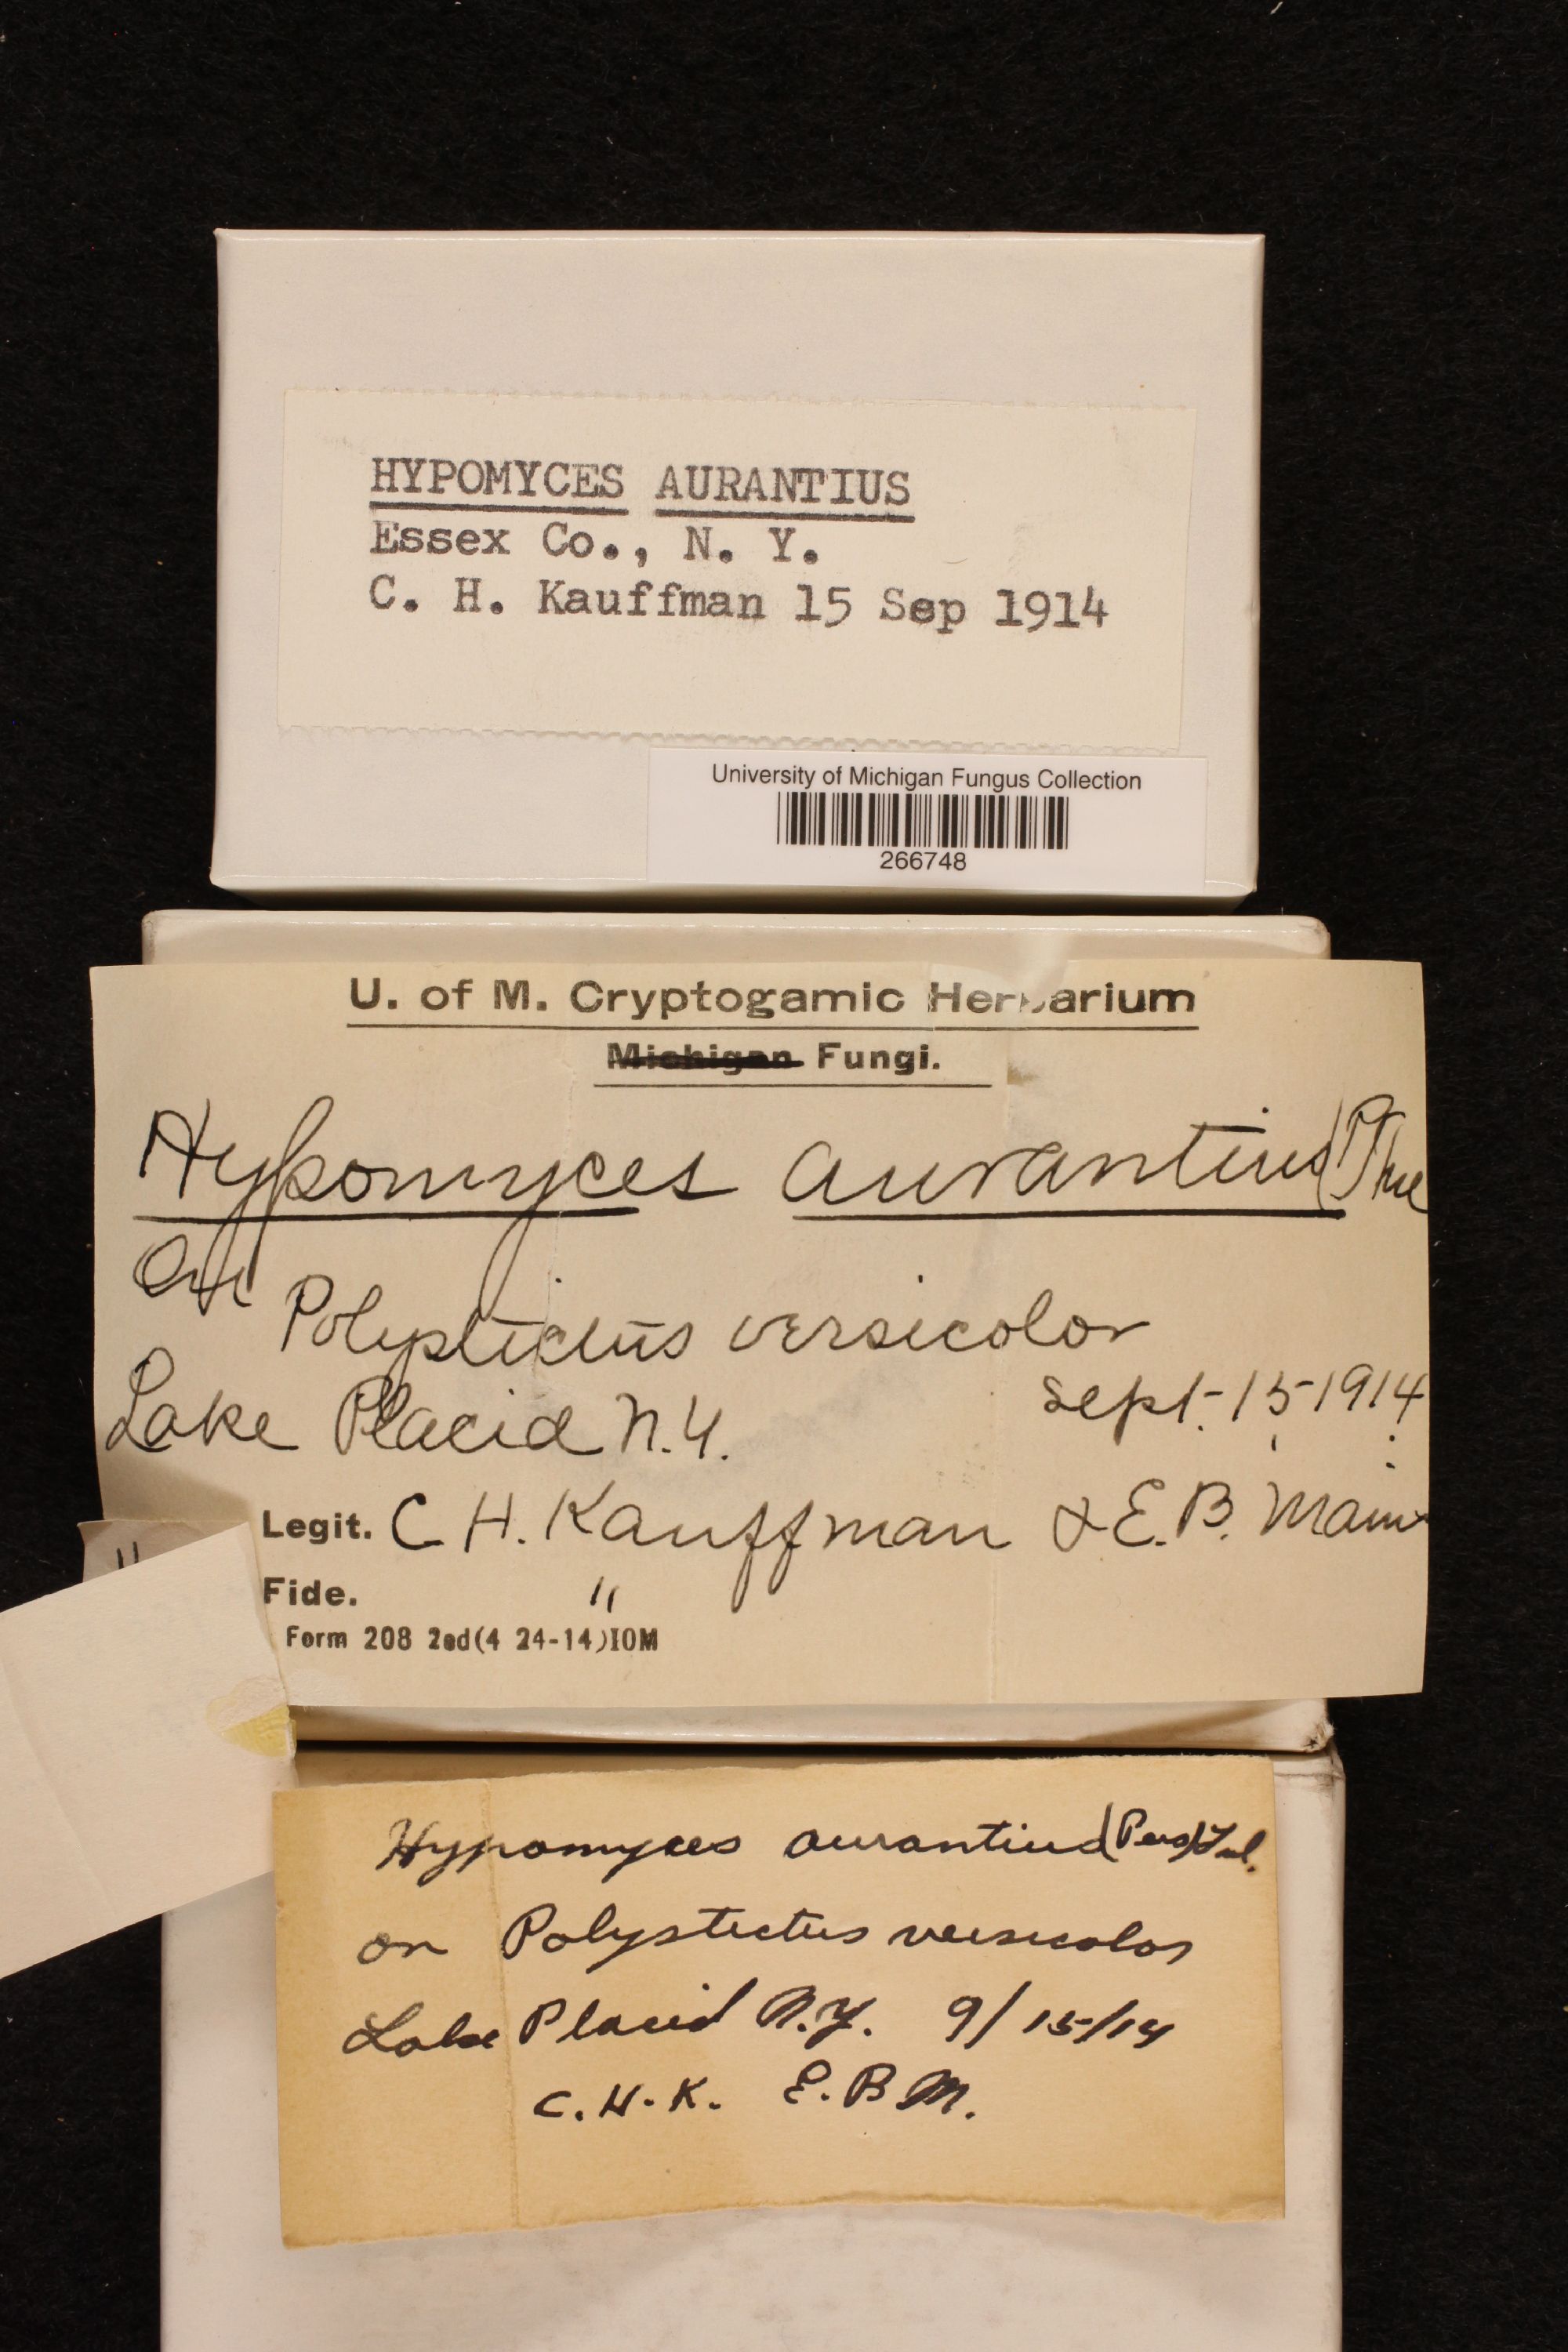 HYPOMYCES AURANTIUS
Essex Co., N. Y.
C. H. Kauffman 15 Sep 1914
University of Michigan Fungus Collection
266748
U. of M. Cryptogamic Herbarium
Michigan Fungi.
Hypomyces aurantius (
on
Polystictus versicolor
Lake Placid N.Y. Sept. 15 1914
Legit. C H. Kauffman & E.B. Mains
Fide. "
Form 208 2ed(4 24-14)10M
Hypomyces aurantius (Pers) Tul.
on Polystictus versicolor
Lake Placid N.Y. 9/15/14
C.H.K. E.B M.